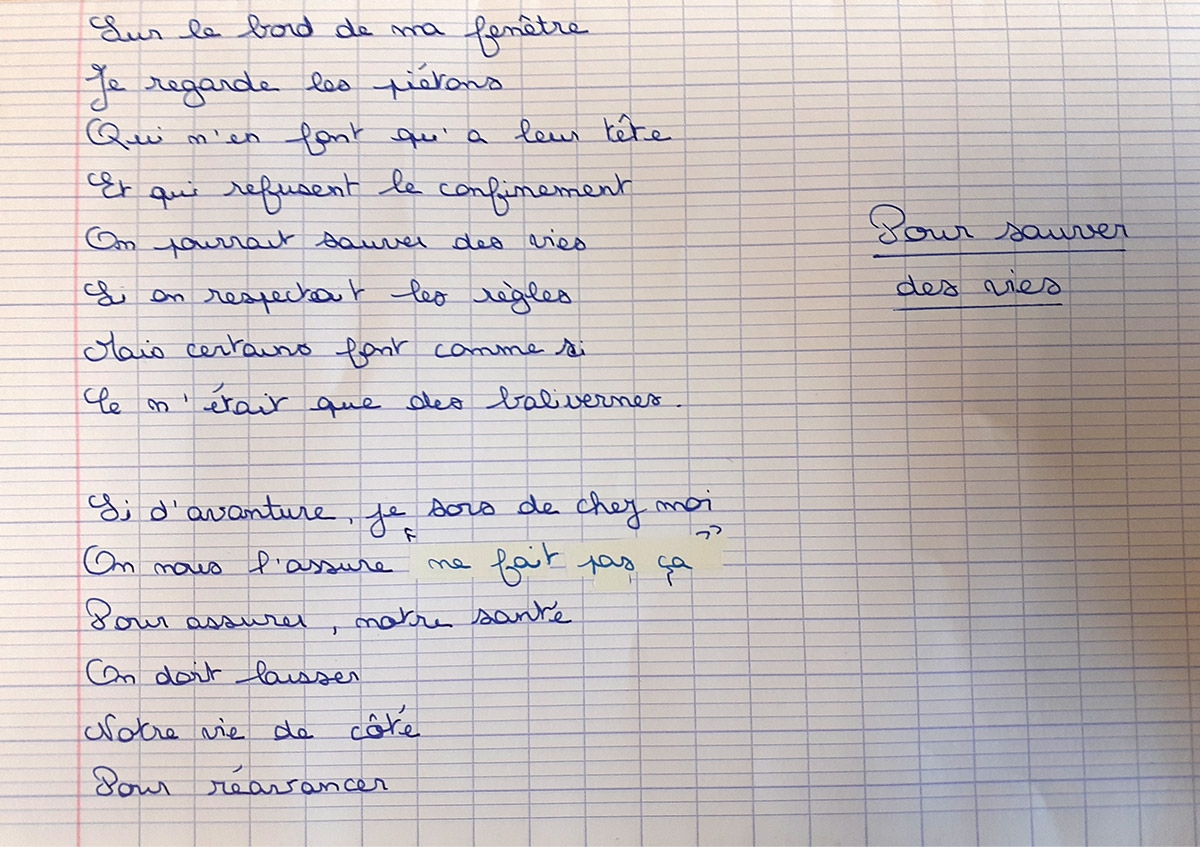 Sur le bord de ma fenêtre
Je regarde les piétons
Qui n'en font qu'a leur tête
Et qui refusent le confinement
On pourrait sauver des vies
Si on respectait les règles
Mais certains font comme si
Ce n'était que des balivernes.
Pour sauver
des vies
Si d'avanture, je sors de chez moi
On nous l'assure "ne fait pas ça"
Pour assurer, notre santé
On doit laisser
Notre vie de côté
Pour réavancer